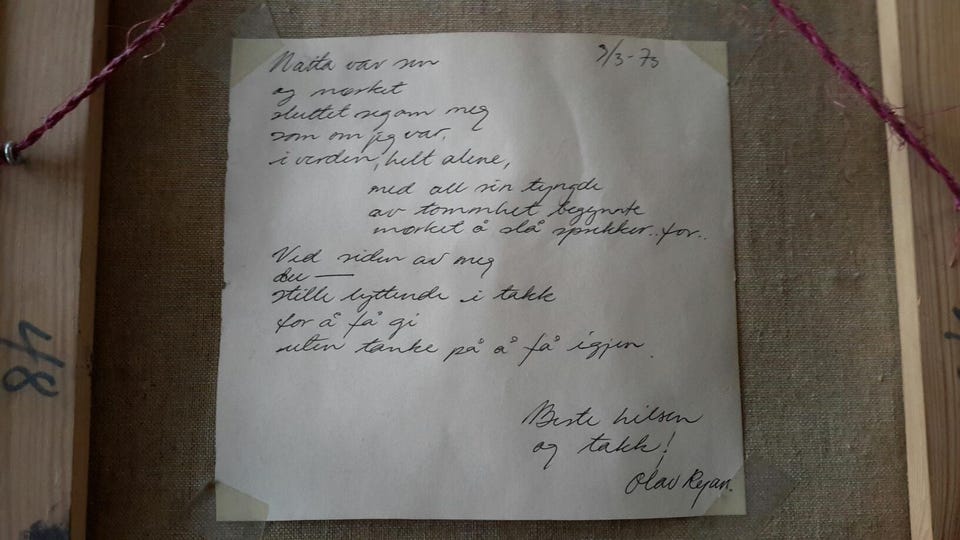 9/3-73
Natta var sen
og mørket
sluttet seg om meg
som om jeg var,
i verden, helt alene,
med all sin tyngde
av tommhet begynnte
mørket å slå sprekker..for..
Ved siden av meg
du —
stille lyttende i takk
for å få gi
uten tanke på å få igjen.
Beste hilsen
og takk!
Olav Ryan.
48